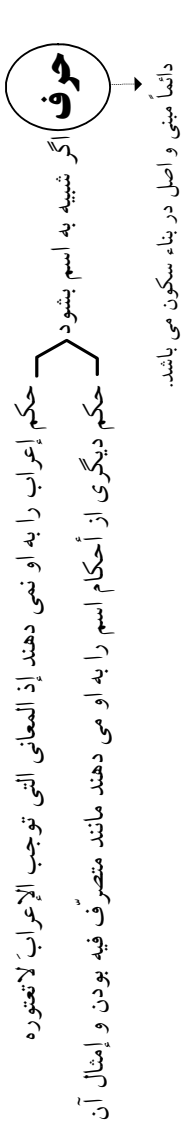 حرف
دائماً مبنی و اصل در بناء سکون می باشد.
اگر شبیه به اسم بشود
حکم إعراب را به او نمی دهند إذ المعانی التی توجب الإعرابَ لاتعتوره
حکم دیگری از أحکام اسم را به او می دهند مانند متصرَّف فیه بودن و إمثال آن